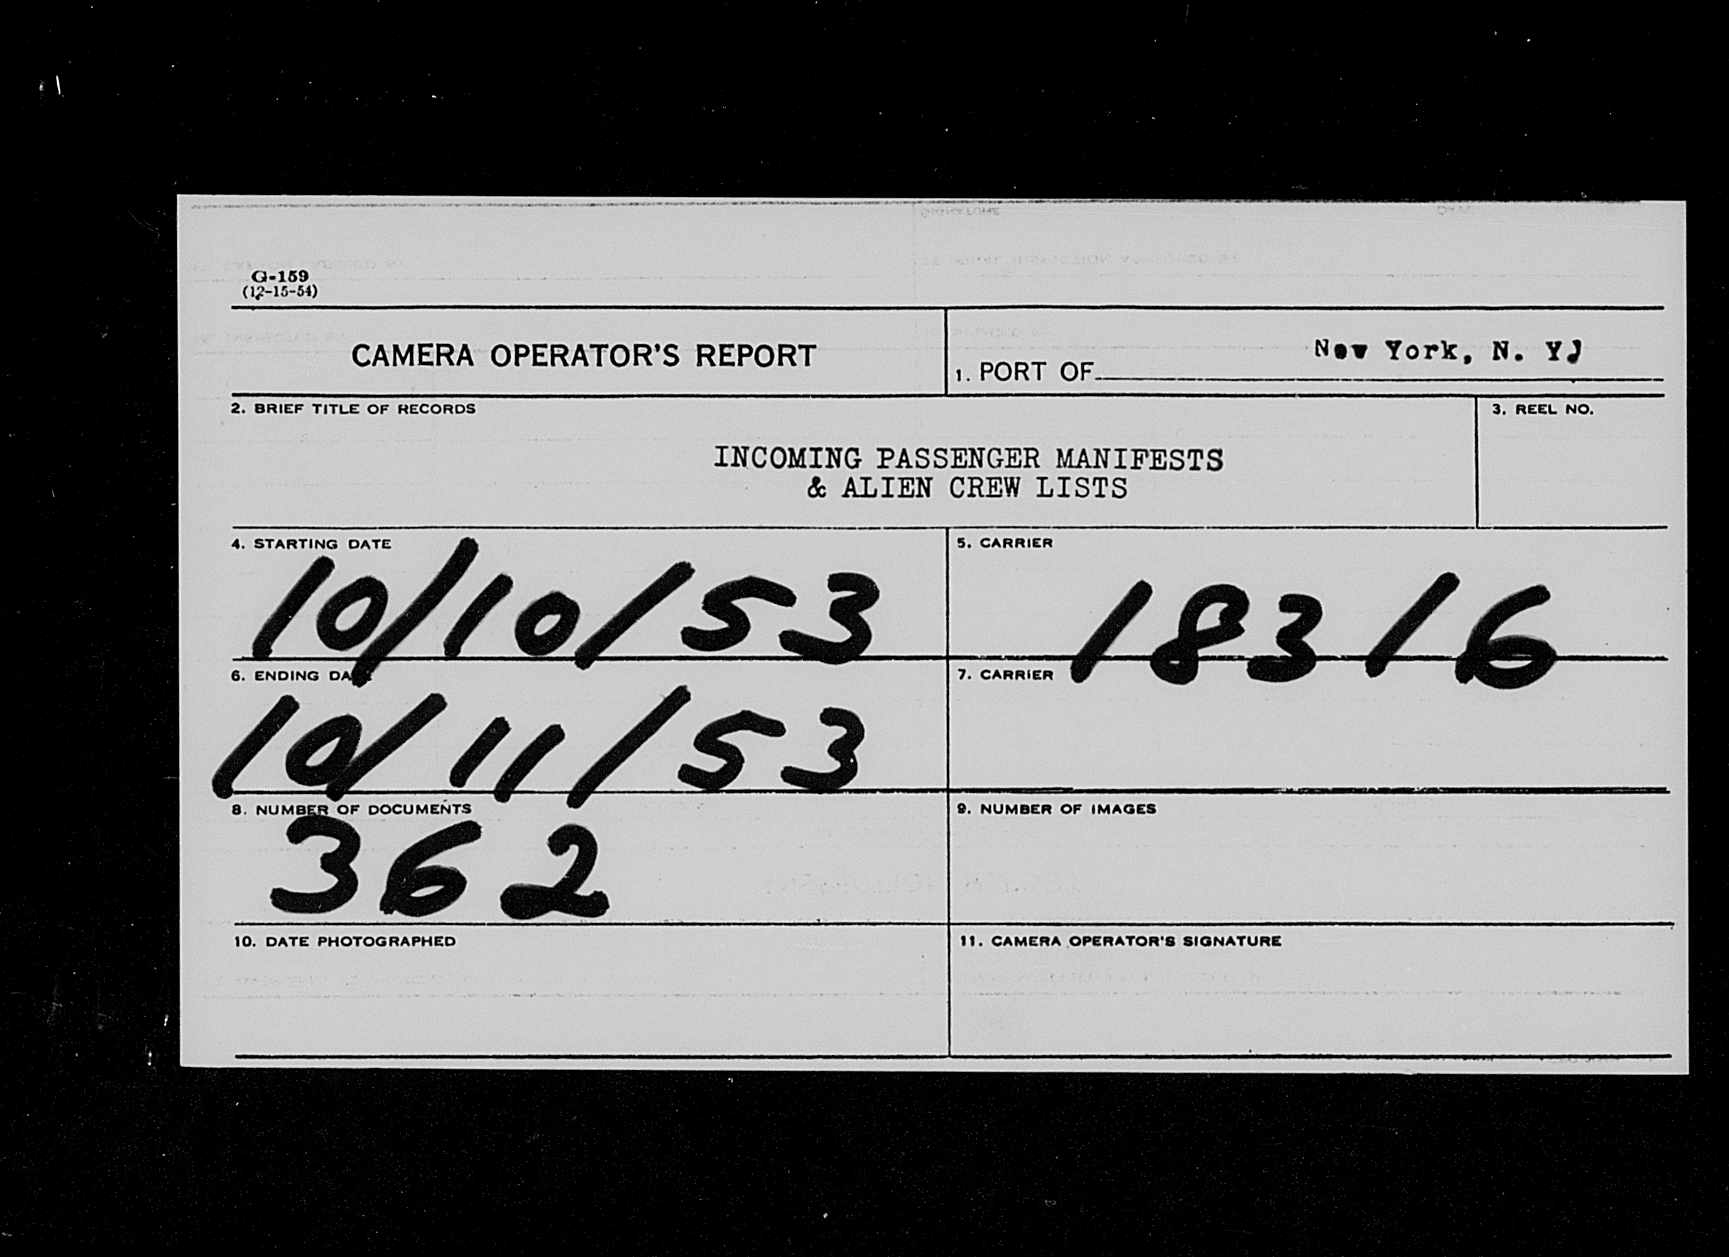 G-159
(12-15-54)
CAMERA OPERATOR'S REPORT
1. PORT OF New York, N. Y.
2. BRIEF TITLE OF RECORDS
3. REEL NO.
INCOMING PASSENGER MANIFESTS
& ALIEN CREW LISTS
4. STARTING DATE
10/10/53
5. CARRIER
18316
6. ENDING DATE
10/11/53
7. CARRIER
8. NUMBER OF DOCUMENTS
362
9. NUMBER OF IMAGES
10. DATE PHOTOGRAPHED
11. CAMERA OPERATOR'S SIGNATURE